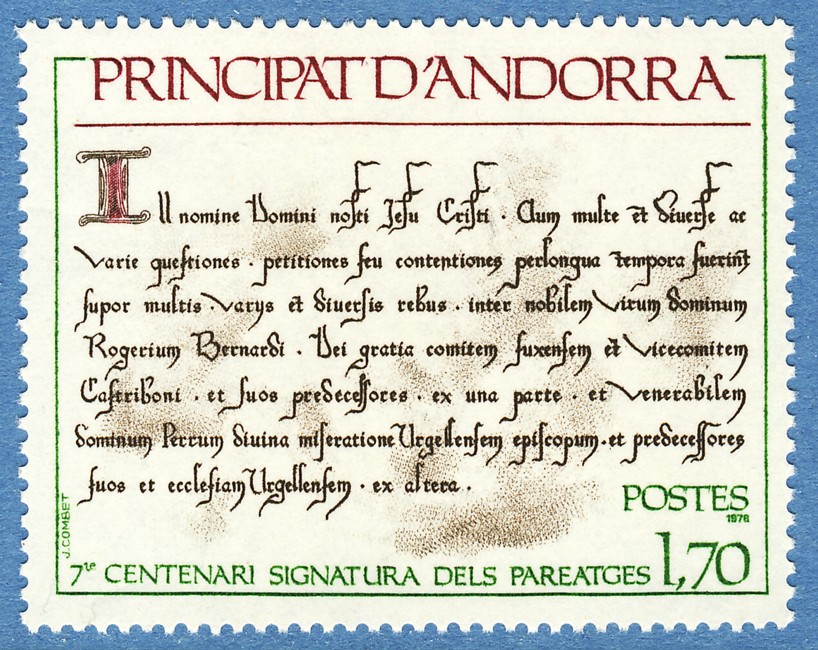 PRINCIPAT D'ANDORRA
In nomine Domini nosti Jesu Cristi · Cum multe et diuerse ac
varie questiones · petitiones seu contentiones perlongua tempora fuerint
supor multis · varys et diuersis rebus · inter nobilem virum dominum
Rogerium Bernardi · Dei gratia comitem fuxensem et vicecomitem
Castriboni · et suos predecessores · ex una parte · et venerabilem
dominum Petrum diuina miseratione Urgellensem episcopum · et predecessores
suos et ecclesiam Urgellensem · ex altera .
POSTES
1978
J. COMBET
7te CENTENARI SIGNATURA DELS PAREATGES 1,70